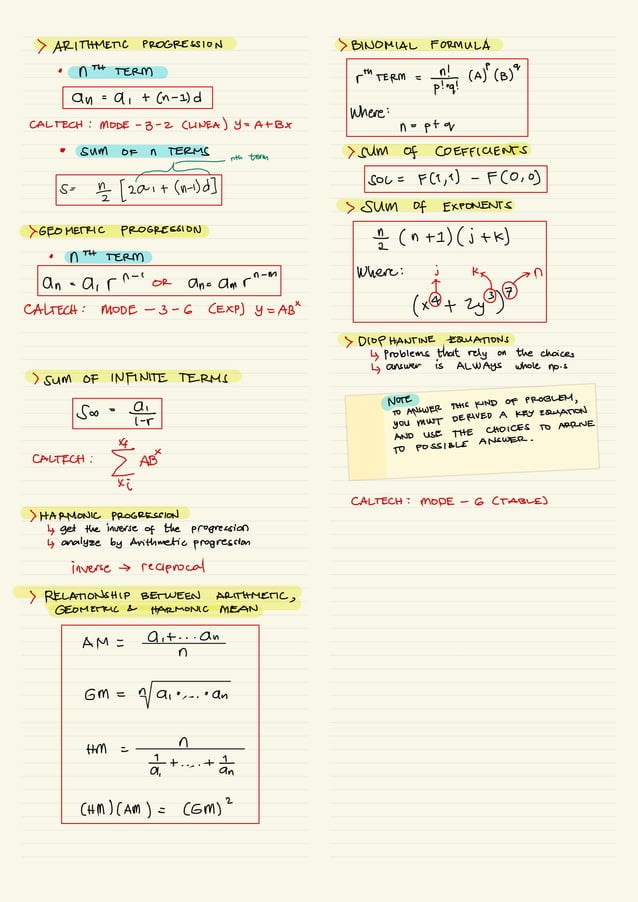 > ARITHMETIC PROGRESSION
• nTH TERM
an = a1 + (n-1)d
CALTECH : MODE - 3-2 (LINEA) y = A+Bx
• SUM OF n TERMS
nth term
S= n/2 [2a1 + (n-1)d]
> GEOMETRIC PROGRESSION
• nTH TERM
an = a1 r^n-1 OR an = am r^n-m
CALTECH : MODE - 3-6 (EXP) y = AB^x
> SUM OF INFINITE TERMS
S∞ = a1/1-r
CALTECH : Σ AB^x
> HARMONIC PROGRESSION
↳ get the inverse of the progression
↳ analyze by Arithmetic progression
inverse → reciprocal
> RELATIONSHIP BETWEEN ARITHMETIC,
GEOMETRIC & HARMONIC MEAN
AM = a1+...an/n
GM = n√a1•,...•an
HM = n/(1/a1 +...+ 1/an)
(HM)(AM) = (GM)^2
> BINOMIAL FORMULA
r^th TERM = n!/p!•q! (A)^p (B)^q
Where:
n = p+q
> SUM OF COEFFICIENTS
SOC = F(1,1) - F(0,0)
> SUM OF EXPONENTS
n/2 (n+1)(j+k)
Where: j k n
(x^4 + 2y^3)^7
> DIOPHANTINE EQUATIONS
↳ Problems that rely on the choices
↳ answer is ALWAYS whole no.s
NOTE
TO ANSWER THIS KIND OF PROBLEM,
YOU MUST DERIVED A KEY EQUATION
AND USE THE CHOICES TO ARRIVE
TO POSSIBLE ANSWER.
CALTECH : MODE - 6 (TABLE)